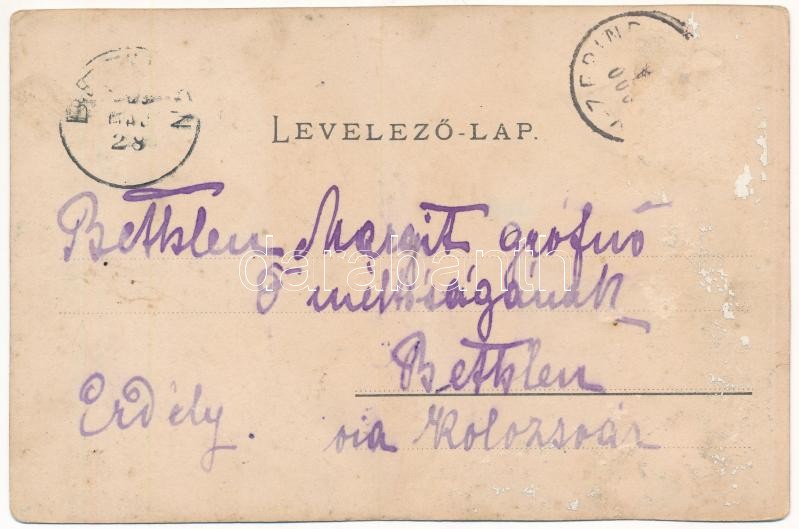 LEVELEZŐ-LAP.
Bethlen Margit grófnő
Ő méltóságának
Bethlen
Erdély. via Kolozsvár
darabanth
28